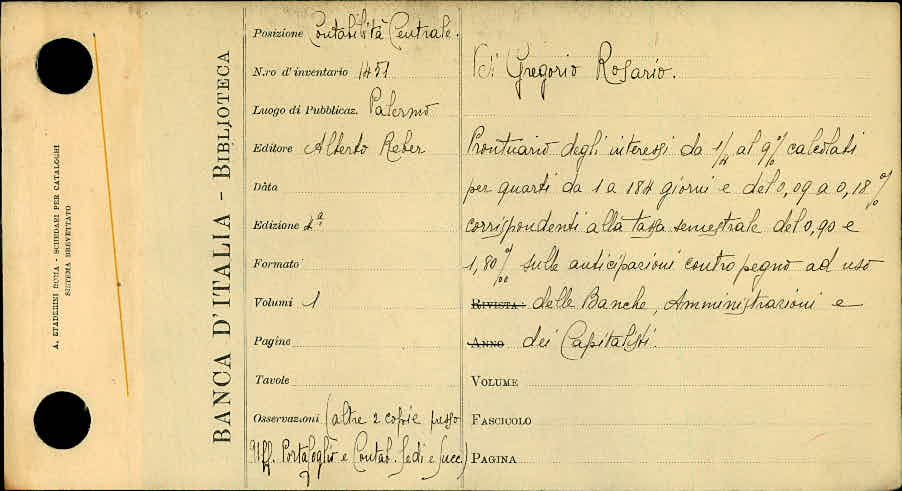 A. STADERINI ROMA - SCHEDARI PER CATALOGHI
SISTEMA BREVETTATO
BANCA D'ITALIA - BIBLIOTECA
Posizione Contabilità Centrale.
N.ro d'inventario 1451
Luogo di Pubblicaz. Palermo
Editore Alberto Reber
Dàta
Edizione 2ª
Formato
Volumi 1
Pagine
Tavole
Osservazioni (altre 2 copie presso
Uff. Portafoglio e Contab. Sedi e Succ.)
Di Gregorio Rosario.
Prontuario degli interessi da 1/4 al 9% calcolati
per quarti da 1 a 184 giorni e del 0,09 a 0,18%
corrispondenti alla tassa semestrale del 0,90 e
1,80% sulle anticipazioni contro pegno ad uso
RIVISTA: delle Banche, Amministrazioni e
ANNO dei Capitalisti.
VOLUME
FASCICOLO
PAGINA